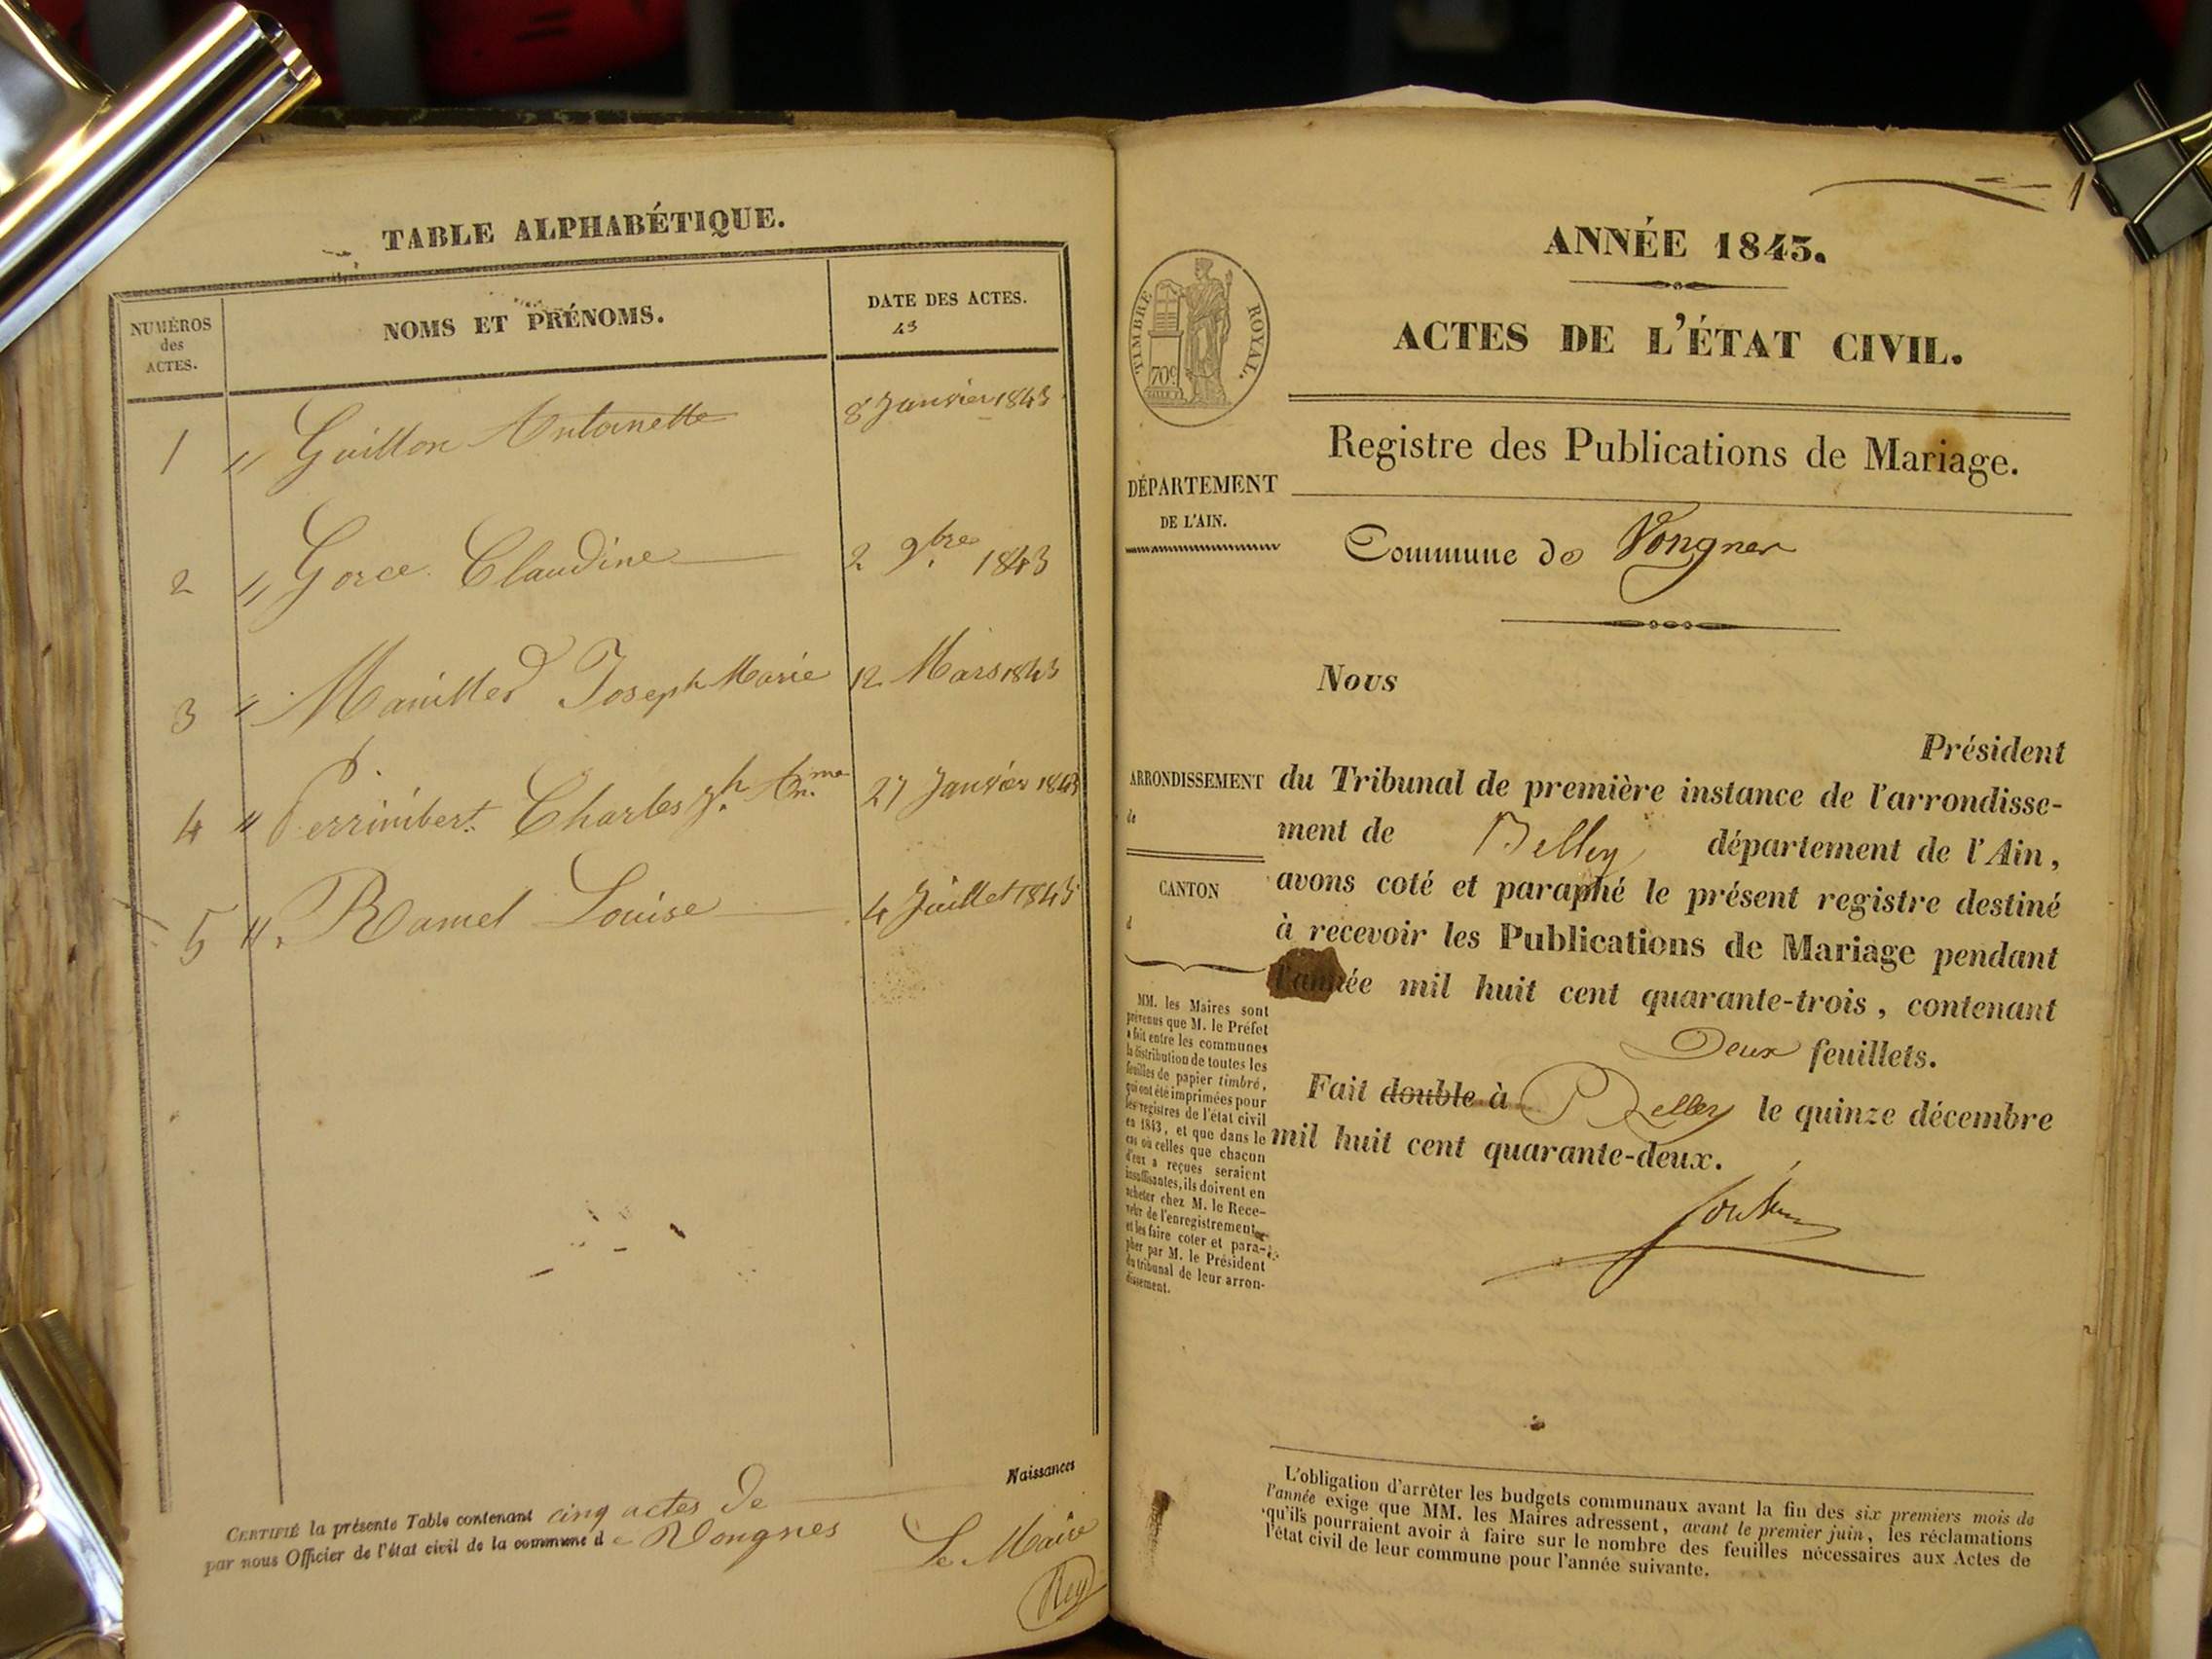 TABLE ALPHABÉTIQUE.
NUMÉROS des ACTES.
NOMS ET PRÉNOMS.
DATE DES ACTES.
43
1 " Guillon Antoinette 8 Janvier 1843
2 " Gorce Claudine 2 9bre 1843
3 " Joseph Marie 12 Mars 1843
4 " Perrimbert Charles jh 27 Janvier 1843
5 " Ramel Louise 4 Juillet 1843
Naissances
CERTIFIÉ la présente Table contenant cinq actes de
par nous Officier de l'état civil de la commune de Vongnes
Le Maire
Rey
1
ANNÉE 1843.
ACTES DE L'ÉTAT CIVIL.
TIMBRE ROYAL.
70c
Registre des Publications de Mariage.
DÉPARTEMENT
DE L'AIN.
Commune de Vongnes
Nous
Président
ARRONDISSEMENT
de
du Tribunal de première instance de l'arrondisse-
ment de Belley département de l'Ain,
CANTON
d
avons coté et paraphé le présent registre destiné
à recevoir les Publications de Mariage pendant
l'année mil huit cent quarante-trois, contenant
Deux feuillets.
Fait double à Belley le quinze décembre
mil huit cent quarante-deux.
MM. les Maires sont
prévenus que M. le Préfet
a fait entre les communes
la distribution de toutes les
feuilles de papier timbré,
qui ont été imprimées pour
les registres de l'état civil
en 1843, et que dans le
cas où celles que chacun
d'eux a reçues seraient
insuffisantes, ils doivent en
acheter chez M. le Rece-
veur de l'enregistrement
et les faire coter et para-
pher par M. le Président
du tribunal de leur arron-
dissement.
L'obligation d'arrêter les budgets communaux avant la fin des six premiers mois de
l'année exige que MM. les Maires adressent, avant le premier juin, les réclamations
qu'ils pourraient avoir à faire sur le nombre des feuilles nécessaires aux Actes de
l'état civil de leur commune pour l'année suivante.